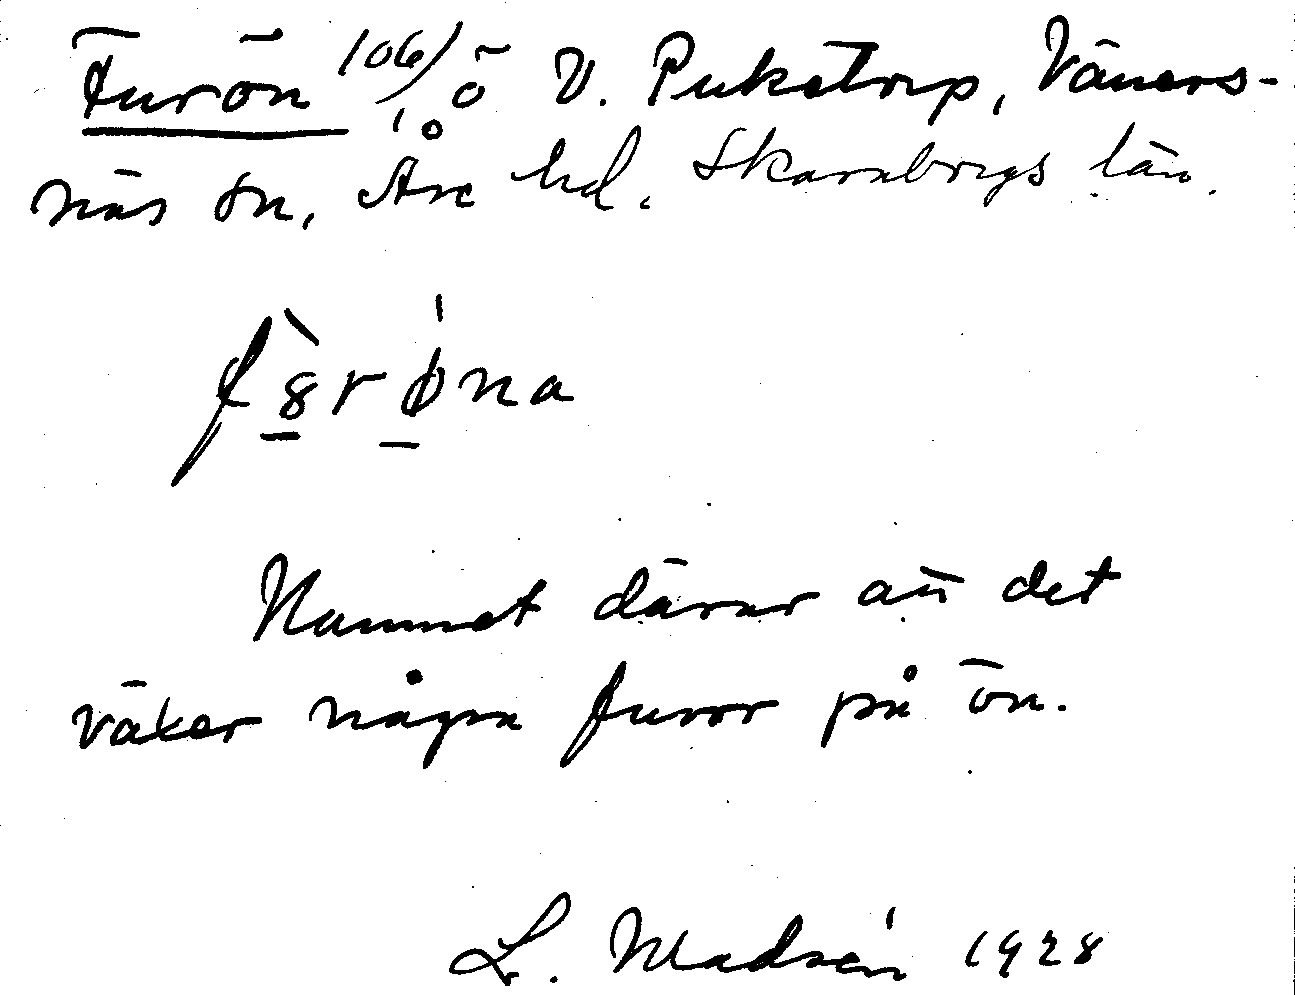 Furön 106) ö V. Pukstorp, Väners-
näs sn, Åse hd. Skaraborgs län.
Namnet därav att det
växer några furor på ön.
L. Madsén 1928